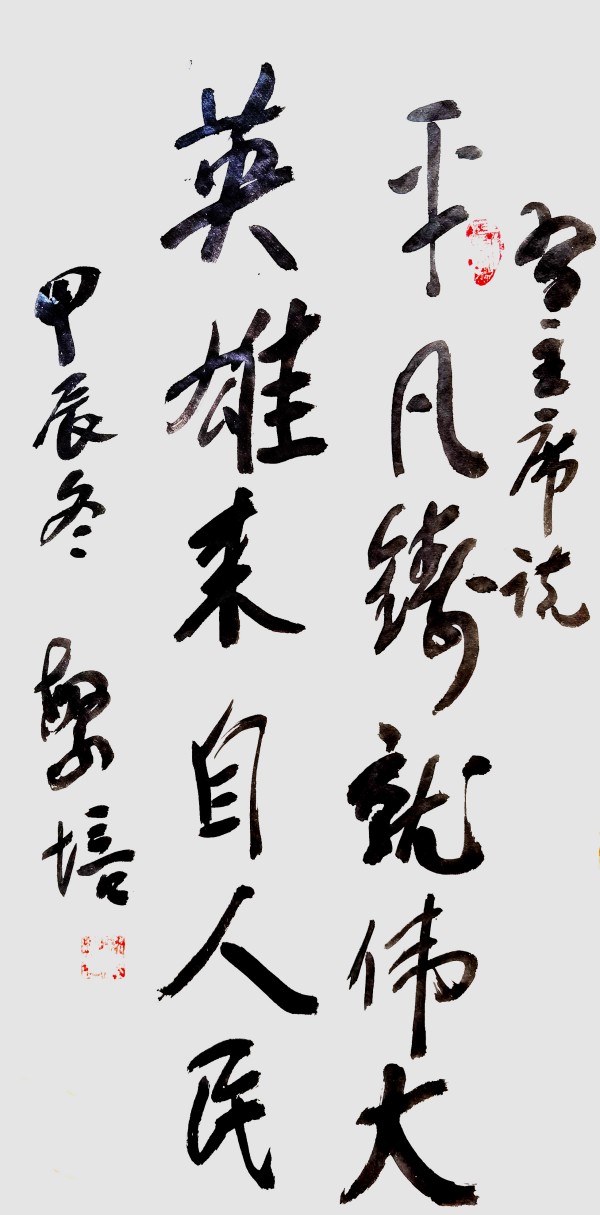 習主席说
平凡铸就伟大
英雄来自人民
甲辰冬 培